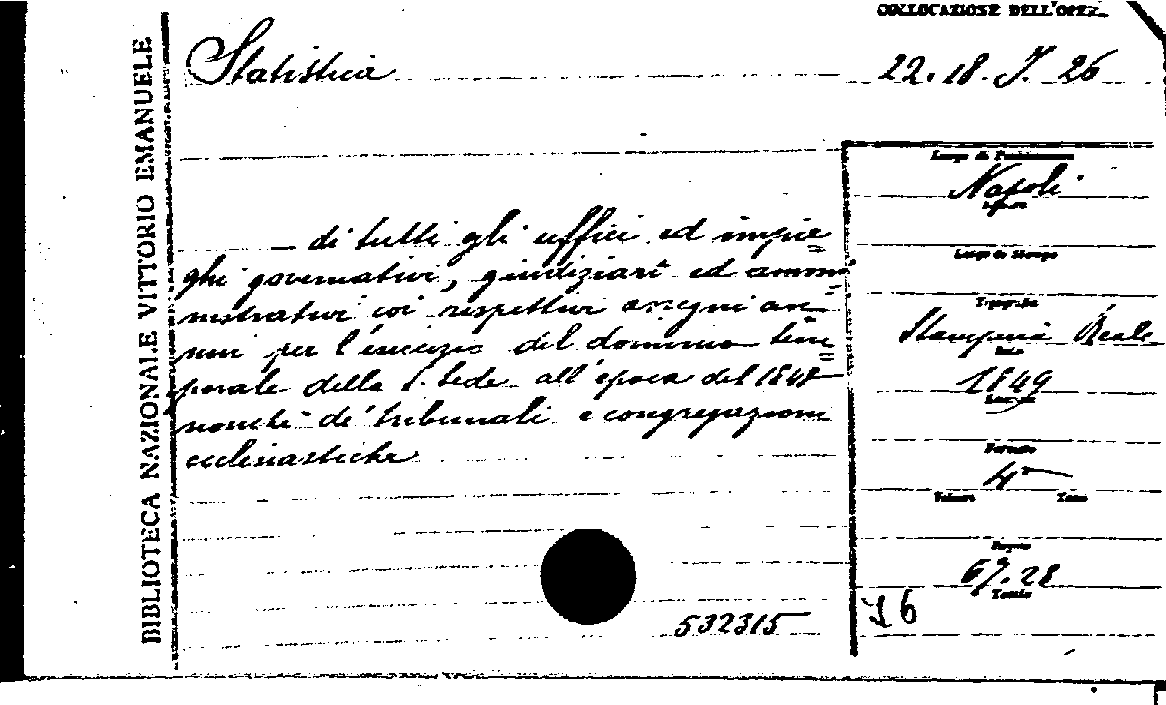 BIBLIOTECA NAZIONALE VITTORIO EMANUELE
COLLOCAZIONE DELL'OPERA
Statistica
22. 18. I. 26
— di tutti gli uffici ed impie=
ghi governativi, giudiziari ed ammi=
nistrativi coi respettivi assegni an=
nui per l'esercizio del dominio tem=
porale della S. Sede all'epoca del 1848
nonchè de' tribunali e congregazioni
ecclesiastiche
532315
Luogo di Pubblicazione
Napoli
Luogo di Stampa
Tipografia
Stamperia Reale
1849
Formato
4°
Volumi
Tomo
67.28
I 6